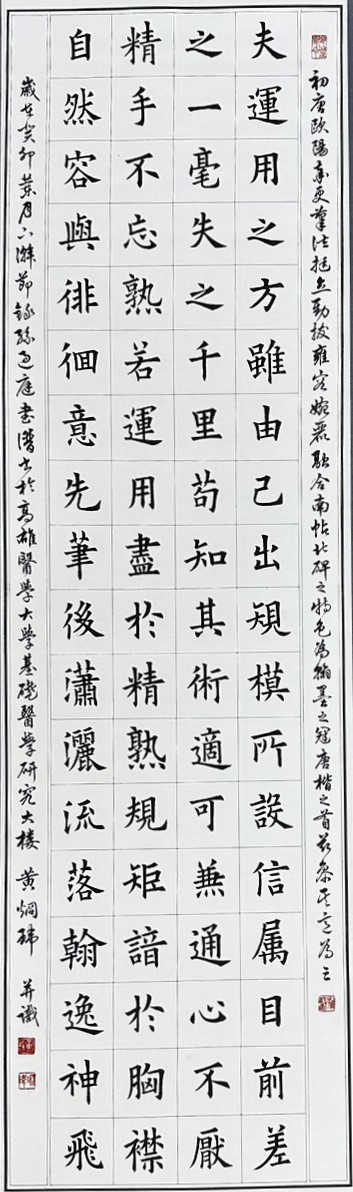 初唐歐陽率更筆法挺立勁拔雍容婉麗融合南帖北碑之特色為翰墨之冠唐楷之首茲參其意為之
夫運用之方雖由己出規模所設信属目前差
之一毫失之千里苟知其術適可兼通心不厭
精手不忘熟若運用盡於精熟規矩諳於胸襟
自然容與徘徊意先筆後瀟灑流落翰逸神飛
歲在癸卯葉月下澣節錄孫過庭書譜書於高雄醫學大學基礎醫學研究大樓 黃炯 并識